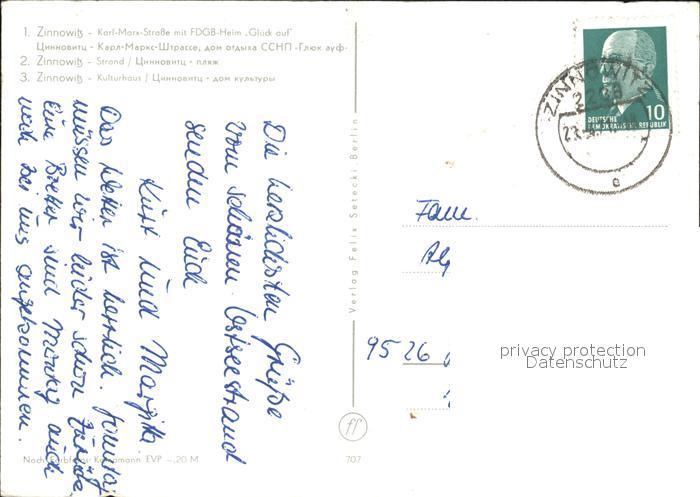 1. Zinnowitz - Karl-Marx-Straße mit FDGB-Heim „Glück auf"
Цинновитц - Карл-Маркс-Штрассе, дом отдыха ССНП -Глюк ауф-
2. Zinnowitz - Strand / Цинновитц - пляж
3. Zinnowitz - Kulturhaus / Цинновитц - дом культуры
Die herzlichsten Grüße
vom schönen Ostseestrand
senden Euch
Kurt und Margitta
Das Wetter ist herrlich. Sonntag
müssen wir leider schon zurück.
Eure Bretter sind Montag auch
noch bei uns angekommen.
Nach Farbfotos EVP -,20 M
707
Verlag Felix Setecki Berlin
ff
ZINNOWITZ
2238
23.
e
10
DEUTSCHE
DEMOKRATISCHE REPUBLIK
Fam.
9526
privacy protection
Datenschutz